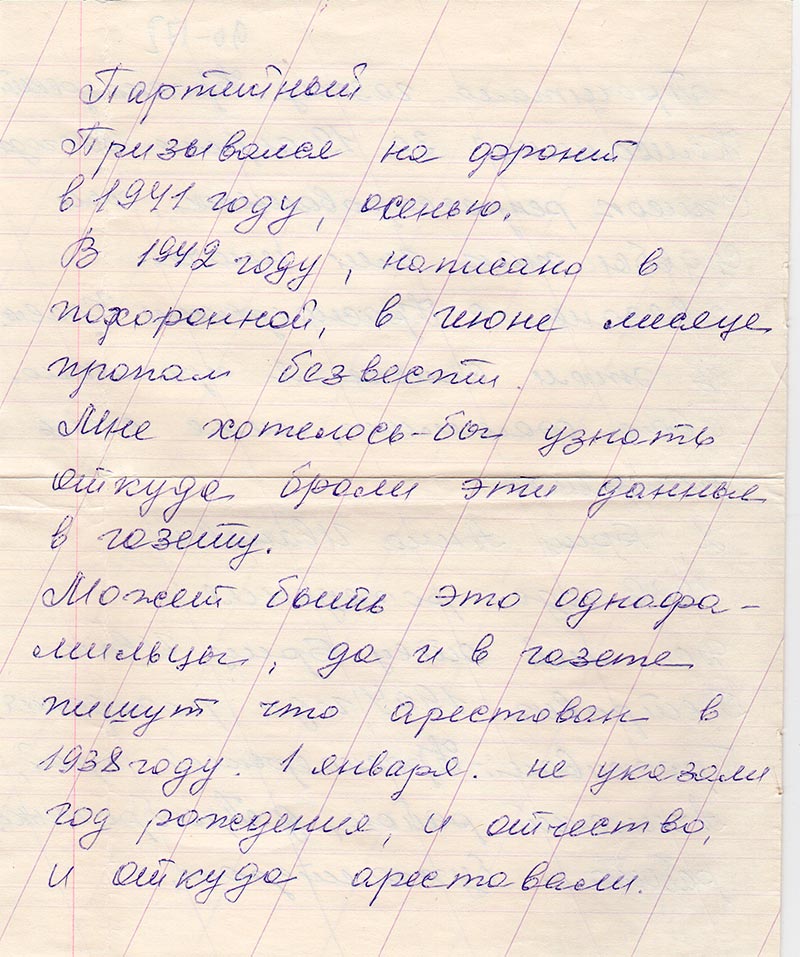 Партийный
Призывался на фронт
в 1941 году, осенью.
В 1942 году, написано в
похоронной, в июне месяце
пропал безвести.
Мне хотелось-бы узнать
откуда брали эти данные
в газету.
Может быть это однофа-
мильцы, да и в газете
пишут что арестован в
1938 году. 1 января. не указали
год рождения, и отчество,
и откуда арестовали.